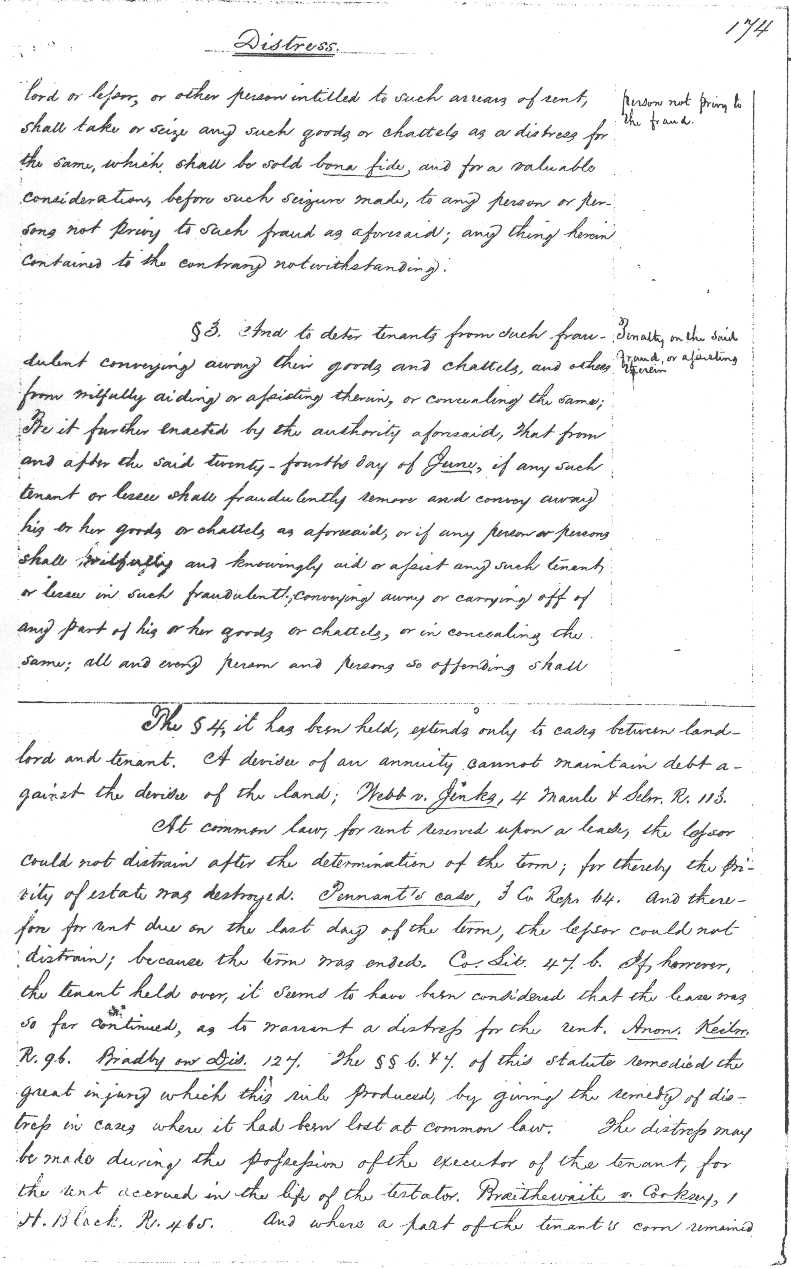 174
Distress.
lord or lessor, or other person intitled to such arrears of rent,
shall take or seize any such goods or chattels as a distress for
the same, which shall be sold bona fide, and for a valuable
consideration, before such seizure made, to any person or per-
sons not privy to such fraud as aforesaid; any thing herein
contained to the contrary notwithstanding.
person not privy to
the fraud.
§ 3. And to deter tenants from such frau-
dulent conveying away their goods and chattels, and others
from wilfully aiding or assisting therein, or concealing the same;
Be it further enacted by the authority aforesaid, that from
and after the said twenty-fourth day of June, if any such
tenant or lessee shall fraudulently remove and convey away
his or her goods or chattels as aforesaid, or if any person or persons
shall wilfully and knowingly aid or assist any such tenant
or lessee in such fraudulent conveying away or carrying off of
any part of his or her goods or chattels, or in concealing the
same; all and every person and persons so offending shall
Penalty on the said
fraud, or assisting
therein
The § 4, it has been held, extends only to cases between land-
lord and tenant. A devisee of an annuity cannot maintain debt a-
gainst the devisee of the land; Webb v. Jinks, 4 Maule & Selw. R. 113.
At common law, for rent reserved upon a lease, the lessor
could not distrain after the determination of the term; for thereby the pri-
vity of estate was destroyed. Pennant's case, 3 Co. Rep. 64. And there-
fore for rent due on the last day of the term, the lessor could not
distrain; because the term was ended. Co. Lit. 47. b. If, however,
the tenant held over, it seems to have been considered that the lease was
so far continued, as to warrant a distress for the rent. Anon. Keilw.
R. 96. Bradby on Dis. 127. The §§ 6. & 7. of this statute remedied the
great injury which this rule produced, by giving the remedy of dis-
tress in cases where it had been lost at common law. The distress may
be made during the possession of the executor of the tenant, for
the rent accrued in the life of the testator. Braithewaite v. Cooksey, 1
H. Black. R. 465. And where a part of the tenant's corn remained